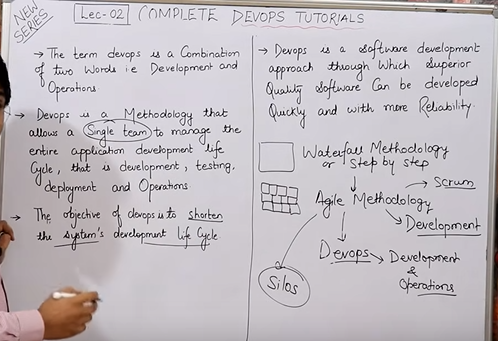 NEW SERIES
Lec-02 COMPLETE DEVOPS TUTORIALS
→ The term devops is a Combination
of two Words i.e Development and
Operations.
→ Devops is a Methodology that
allows a Single team to manage the
entire application development life
Cycle, that is development, testing,
deployment and Operations
→ The objective of devops is to shorten
the system's development life Cycle.
→ Devops is a software development
approach through Which superior
Quality software Can be developed
Quickly and with more Reliability.
Waterfall Methodology
or Step by step
→ Scrum
Agile Methodology
→ Development
Devops → Development
&
Operations
Silos